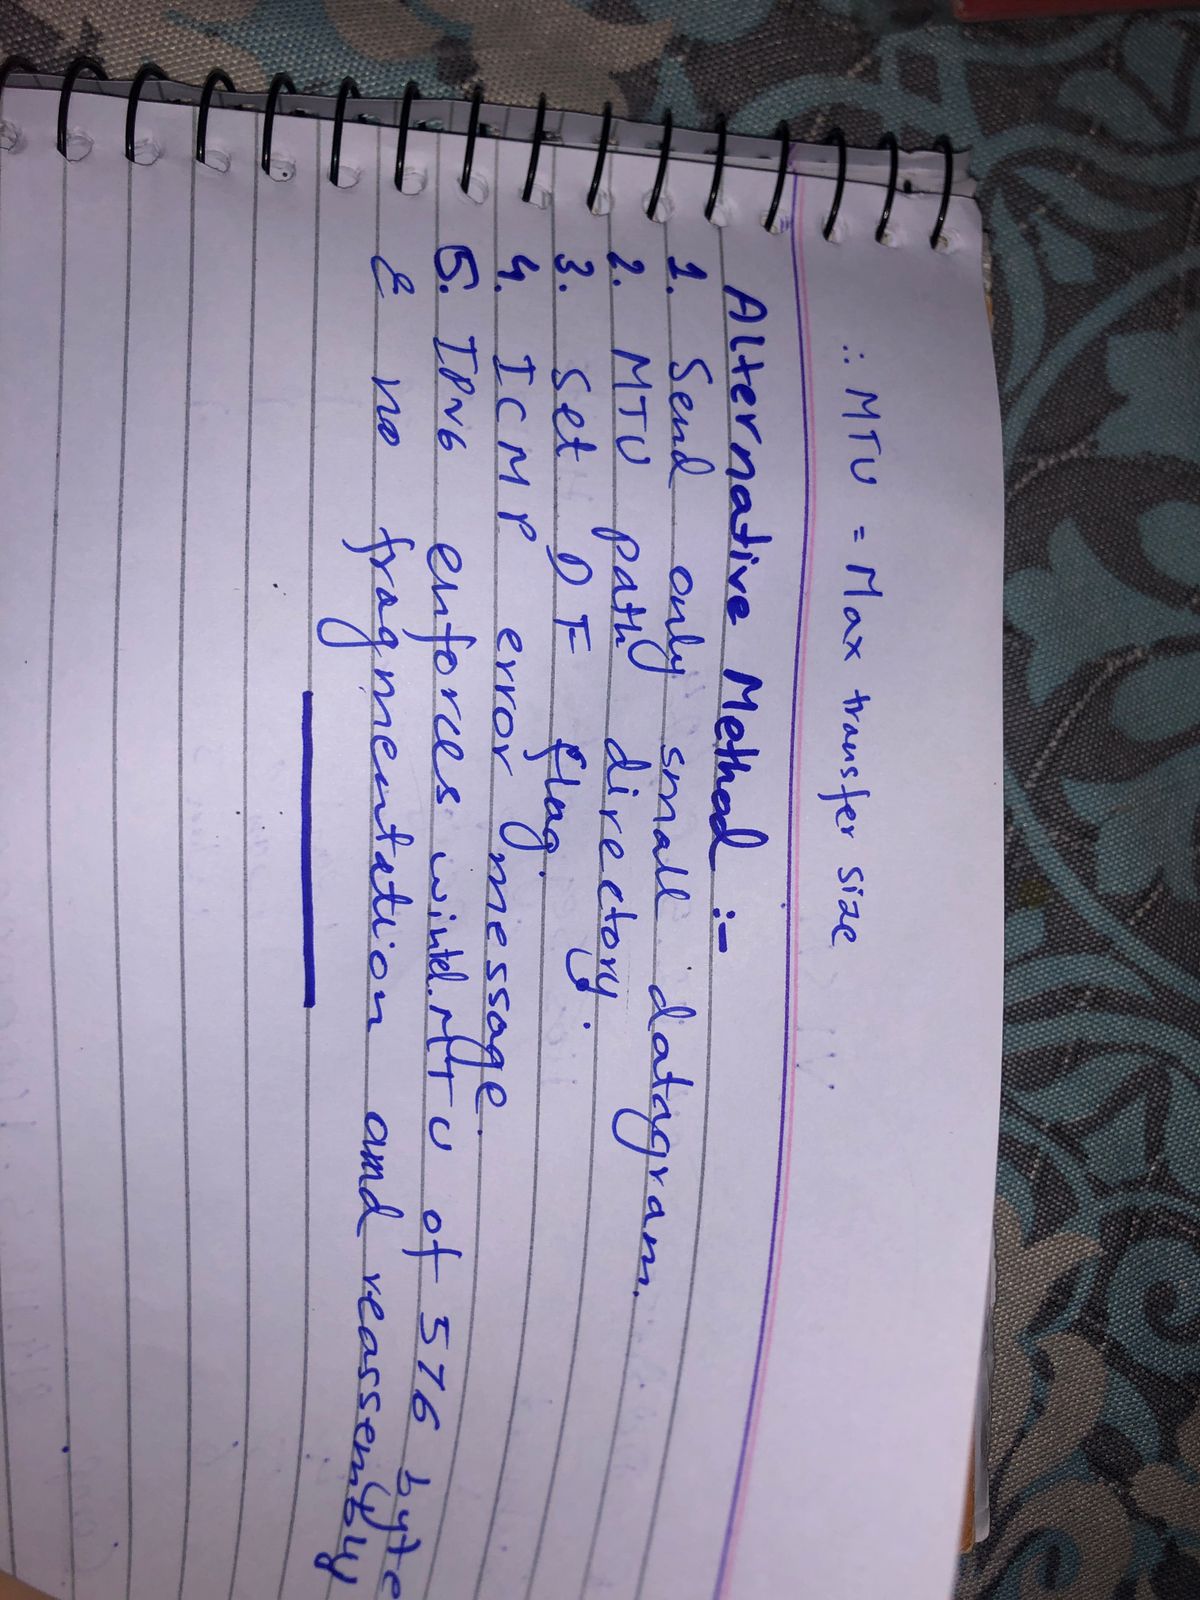 ∴ MTU = Max transfer size
Alternative Method :-
1. Send only small datagram.
2. MTU path directory.
3. set DF flag.
4. ICMP error message.
5. IPv6 enforces MTU of 576 byte
& no fragmentation and reassembly